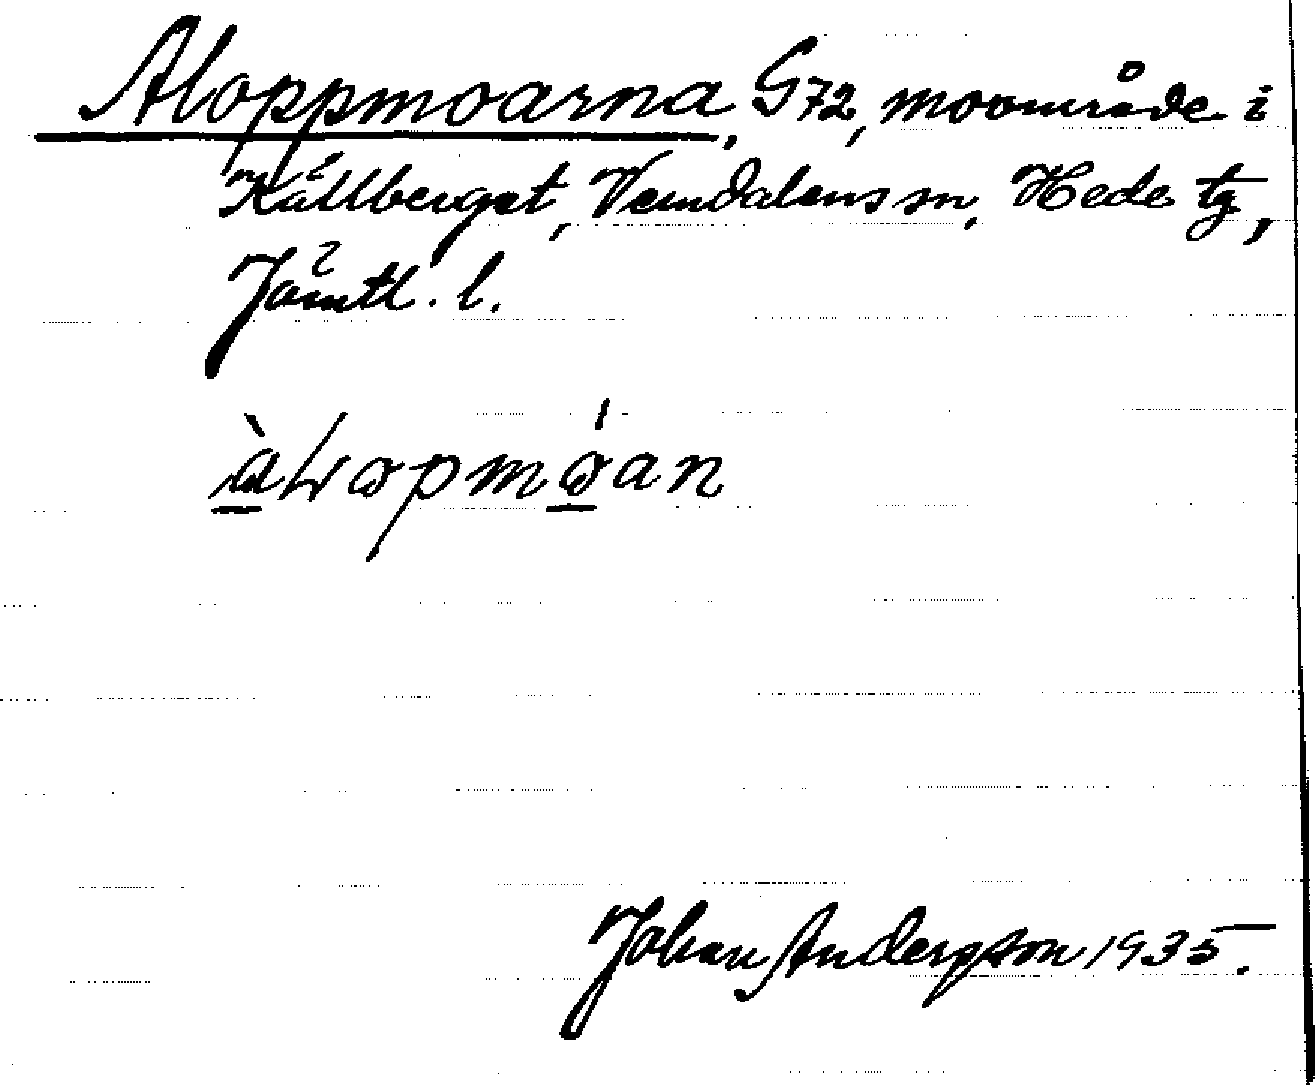 Aloppmoarna, G72, moområde i
Källberget, Vemdalens sn, Hede tg,
Jämtl. l.
Johan Andersson 1935.